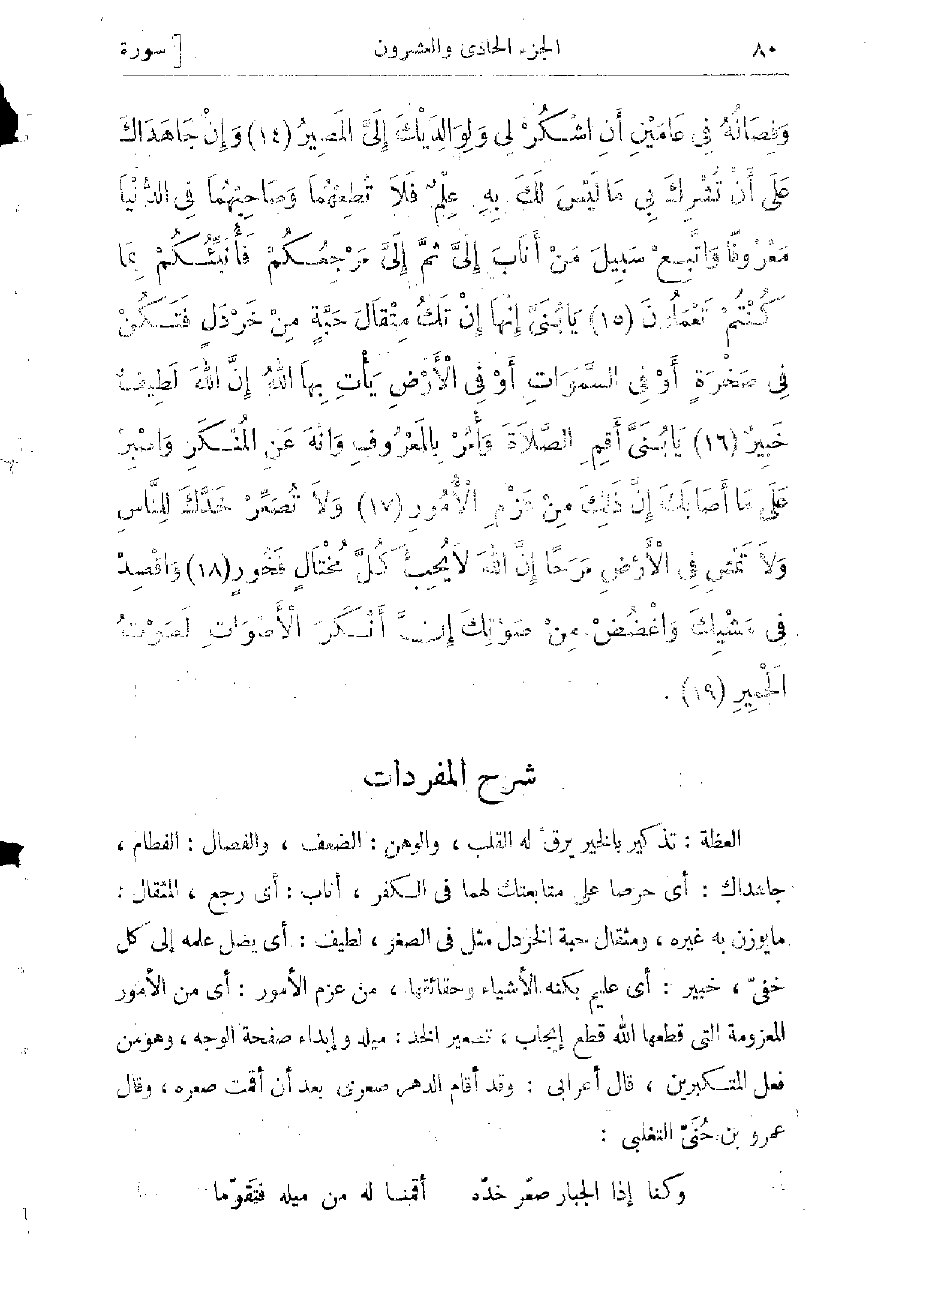 ٨٠ الجزء الحادى والعشرون [ سورة
وَفِصَالُهُ فِى عَامَيْنِ أَنِ اشْكُرْ لِى وَلِوَالِدَيْكَ إِلَىَّ الْمَصِيرُ (١٤) وَإِنْ جَاهَدَاكَ
عَلَى أَنْ تُشْرِكَ بِى مَا لَيْسَ لَكَ بِهِ عِلْمٌ فَلَا تُطِعْهُمَا وَصَاحِبْهُمَا فِى الدُّنْيَا
مَعْرُوفًا وَاتَّبِعْ سَبِيلَ مَنْ أَنَابَ إِلَىَّ ثُمَّ إِلَىَّ مَرْجِعُكُمْ فَأُنَبِّئُكُمْ بِمَا
كُنْتُمْ تَعْمَلُونَ (١٥) يَابُنَىَّ إِنَّهَا إِنْ تَكُ مِثْقَالَ حَبَّةٍ مِنْ خَرْدَلٍ فَتَكُنْ
فِى صَخْرَةٍ أَوْ فِى السَّمَوَاتِ أَوْ فِى الْأَرْضِ يَأْتِ بِهَا اللهُ إِنَّ اللهَ لَطِيفٌ
خَبِيرٌ (١٦) يَابُنَىَّ أَقِمِ الصَّلَاةَ وَأْمُرْ بِالْمَعْرُوفِ وَانْهَ عَنِ الْمُنْكَرِ وَاصْبِرْ
عَلَى مَا أَصَابَكَ إِنَّ ذَلِكَ مِنْ عَزْمِ الْأُمُورِ (١٧) وَلَا تُصَعِّرْ خَدَّكَ لِلنَّاسِ
وَلَا تَمْشِ فِى الْأَرْضِ مَرَحًا إِنَّ اللهَ لَا يُحِبُّ كُلَّ مُخْتَالٍ فَخُورٍ (١٨) وَاقْصِدْ
فِى مَشْيِكَ وَاغْضُضْ مِنْ صَوْتِكَ إِنَّ أَنْكَرَ الْأَصْوَاتِ لَصَوْتُ
الْحَمِيرِ (١٩) .
شرح المفردات
العظة : تذكير بالخير يرقّ له القلب ، والوهن : الضعف ، والفصال : الفطام ،
جاهداك : أى حرصا على متابعتك لهما فى الكفر ، أناب : أى رجع ، المثقال :
مايوزن به غيره ، ومثقال حبة الخردل مثل فى الصغر ، لطيف : أى يصل علمه إلى كل
خفىّ ، خبير : أى عليم بكنه الأشياء وحقائقها ، من عزم الأمور : أى من الأمور
المعزومة التى قطعها الله قطع إيجاب ، تصعير الخد : ميله وإبداء صفحة الوجه ، وهو من
فعل المتكبرين ، قال أعرابى : وقد أقام الدهر صعرى بعد أن أقمت صعره ، وقال
عمرو بن حُنَىّ التغلبى :
وكنا إذا الجبار صعّر خدّه أقمنا له من ميله فتقوّما